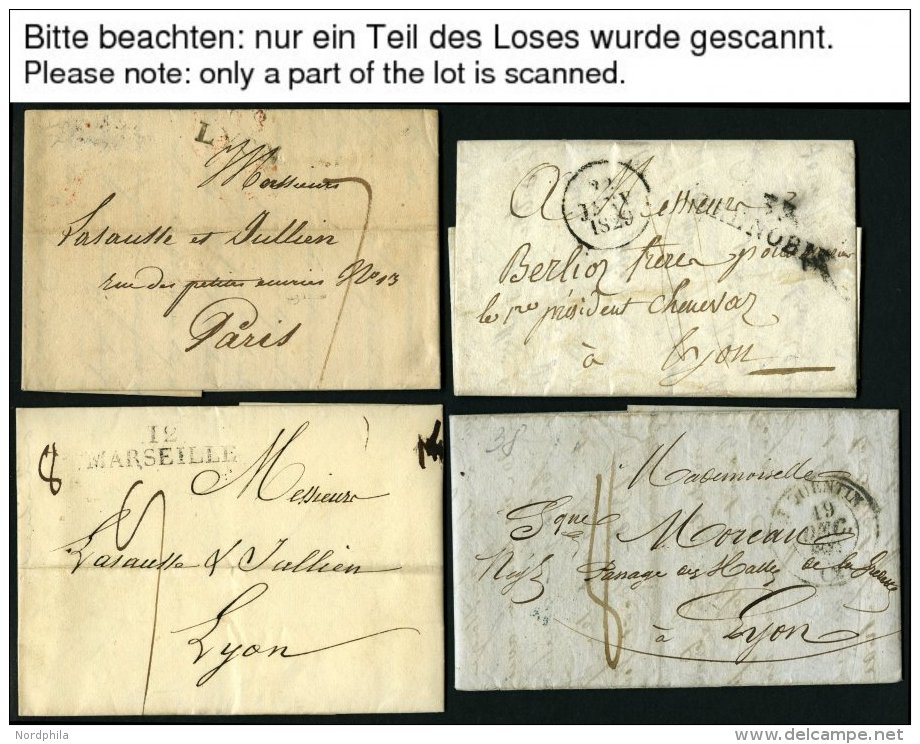 Bitte beachten: nur ein Teil des Loses wurde gescannt.
Please note: only a part of the lot is scanned.
L
Messieurs
Lasausse et Jullien
rue des petites ecuries No 13
Paris
7
22
JANV
1829
A Messieurs
GRENOBLE
Berlioz frères pour
le 1er président Chenevaz
à Lyon
12
MARSEILLE
8
Messieurs
Lasausse & Jullien
Lyon
38
Mademoiselle
Moreau
Passage des Halles de la Grenette
à Lyon
ST QUENTIN
19
DEC
Nordphila
www.delcampe.net